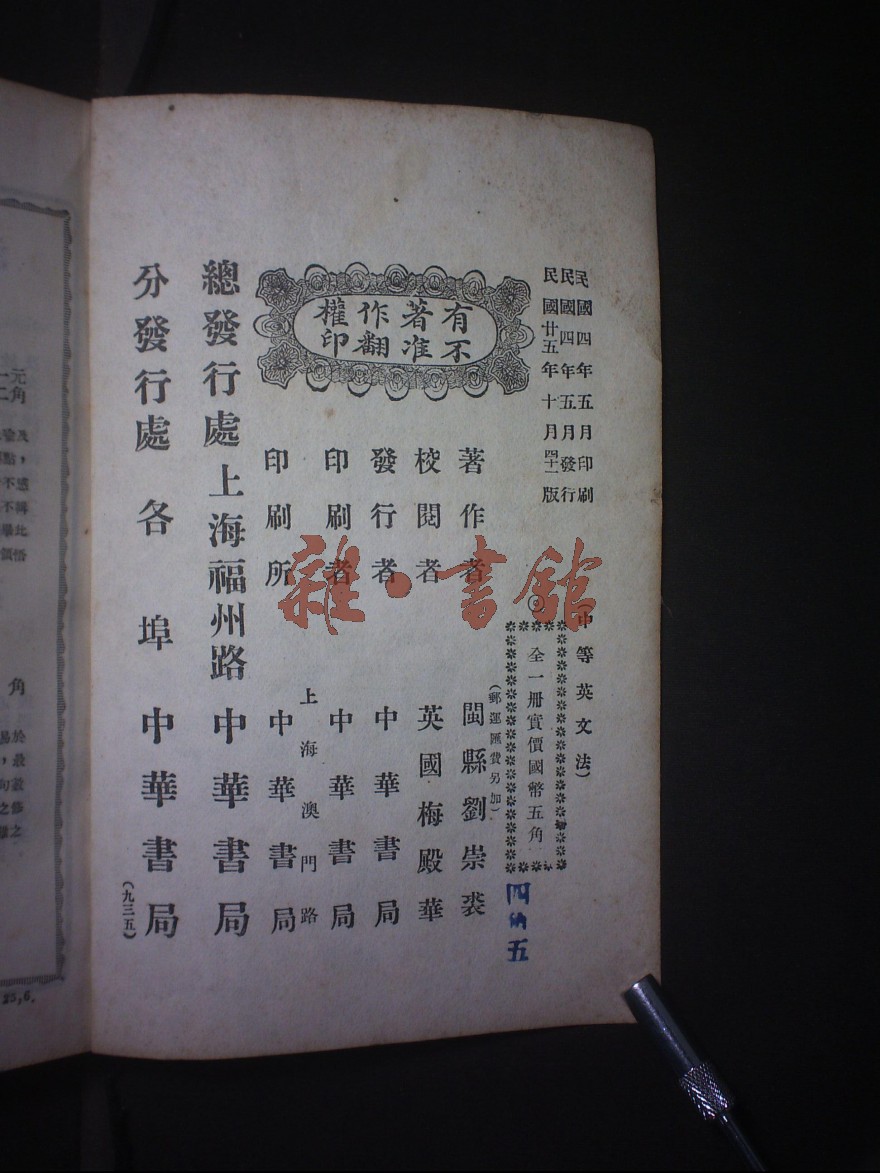 民國四年五月印刷
民國四年五月發行
民國廿五年十月四十一版
有著作權
不准翻印
(中等英文法)
◎
全一冊實價國幣五角
(郵運匯費另加)
四角五
著作者 閩縣劉崇裘
校閱者 英國梅殿華
發行者 中華書局
印刷者 中華書局
上海澳門路
印刷所 中華書局
總發行處 上海福州路 中華書局
分發行處 各埠 中華書局
(九三五)
雜·書館
元
二角
角
25,6.